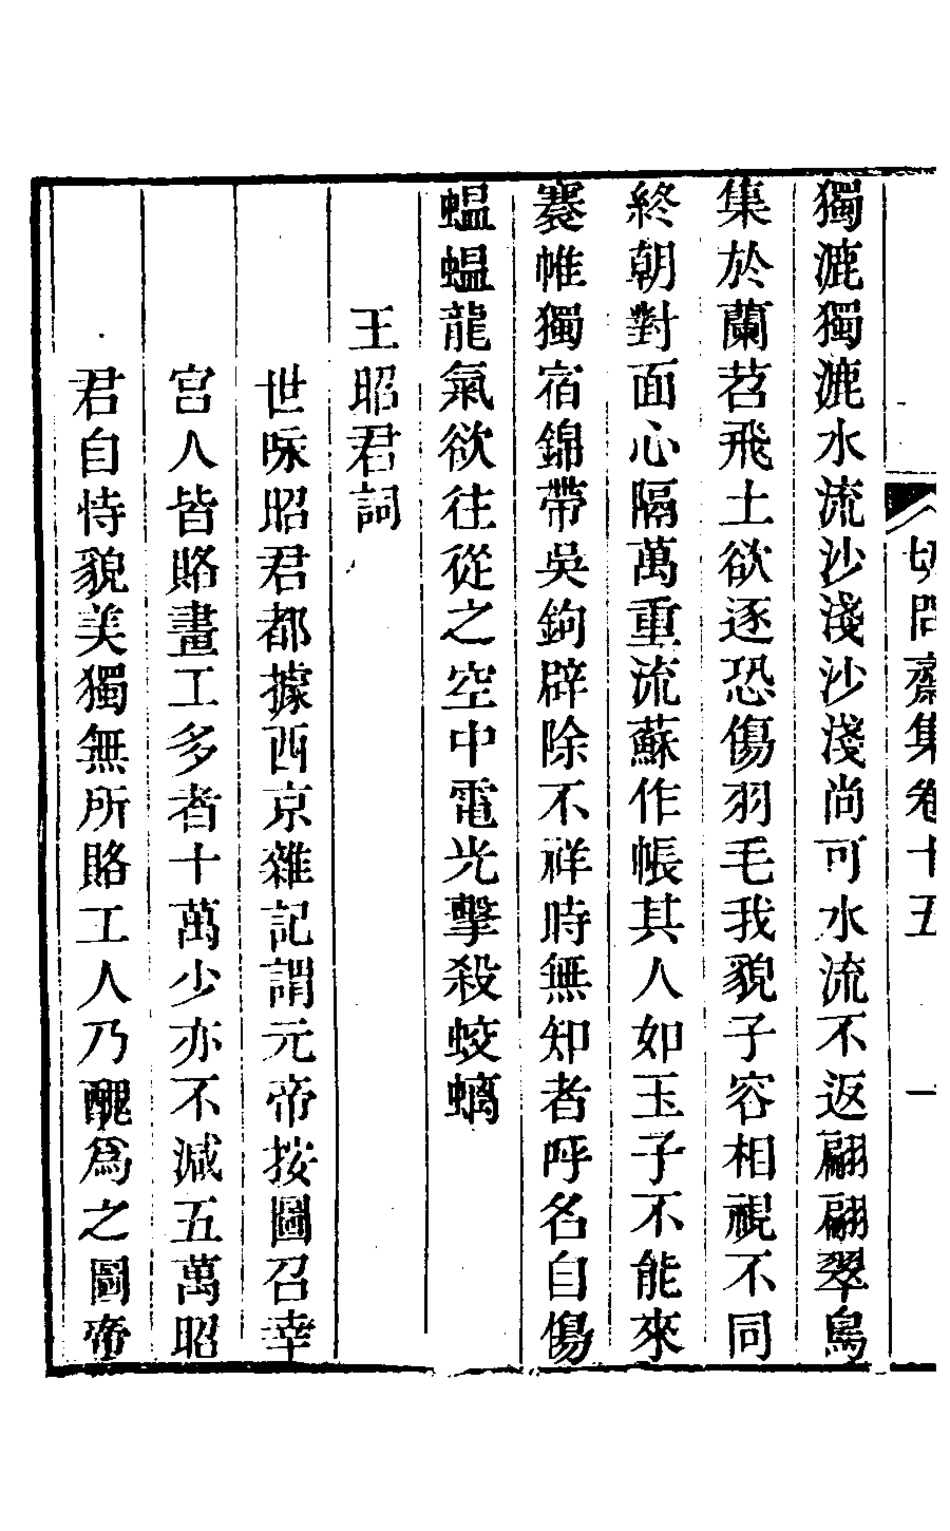 切問齋集卷十五 一
獨漉獨漉水流沙淺沙淺尚可水流不返翩翩翠鳥
集於蘭苕飛土欲逐恐傷羽毛我貌子容相視不同
終朝對面心隔萬重流蘇作帳其人如玉子不能來
褰帷獨宿錦帶吳鉤辟除不祥時無知者呼名自傷
蝹蝹龍氣欲往從之空中電光擊殺蛟螭
王昭君詞
世咏昭君都據西京雜記謂元帝按圖召幸
宮人皆賂畫工多者十萬少亦不減五萬昭
君自恃貌美獨無所賂工人乃醜爲之圖帝